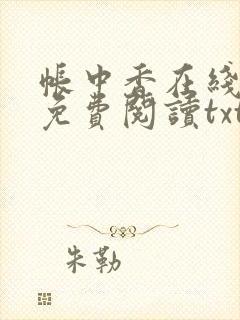 帳中香在綫
免費閱讀txt
朱勒